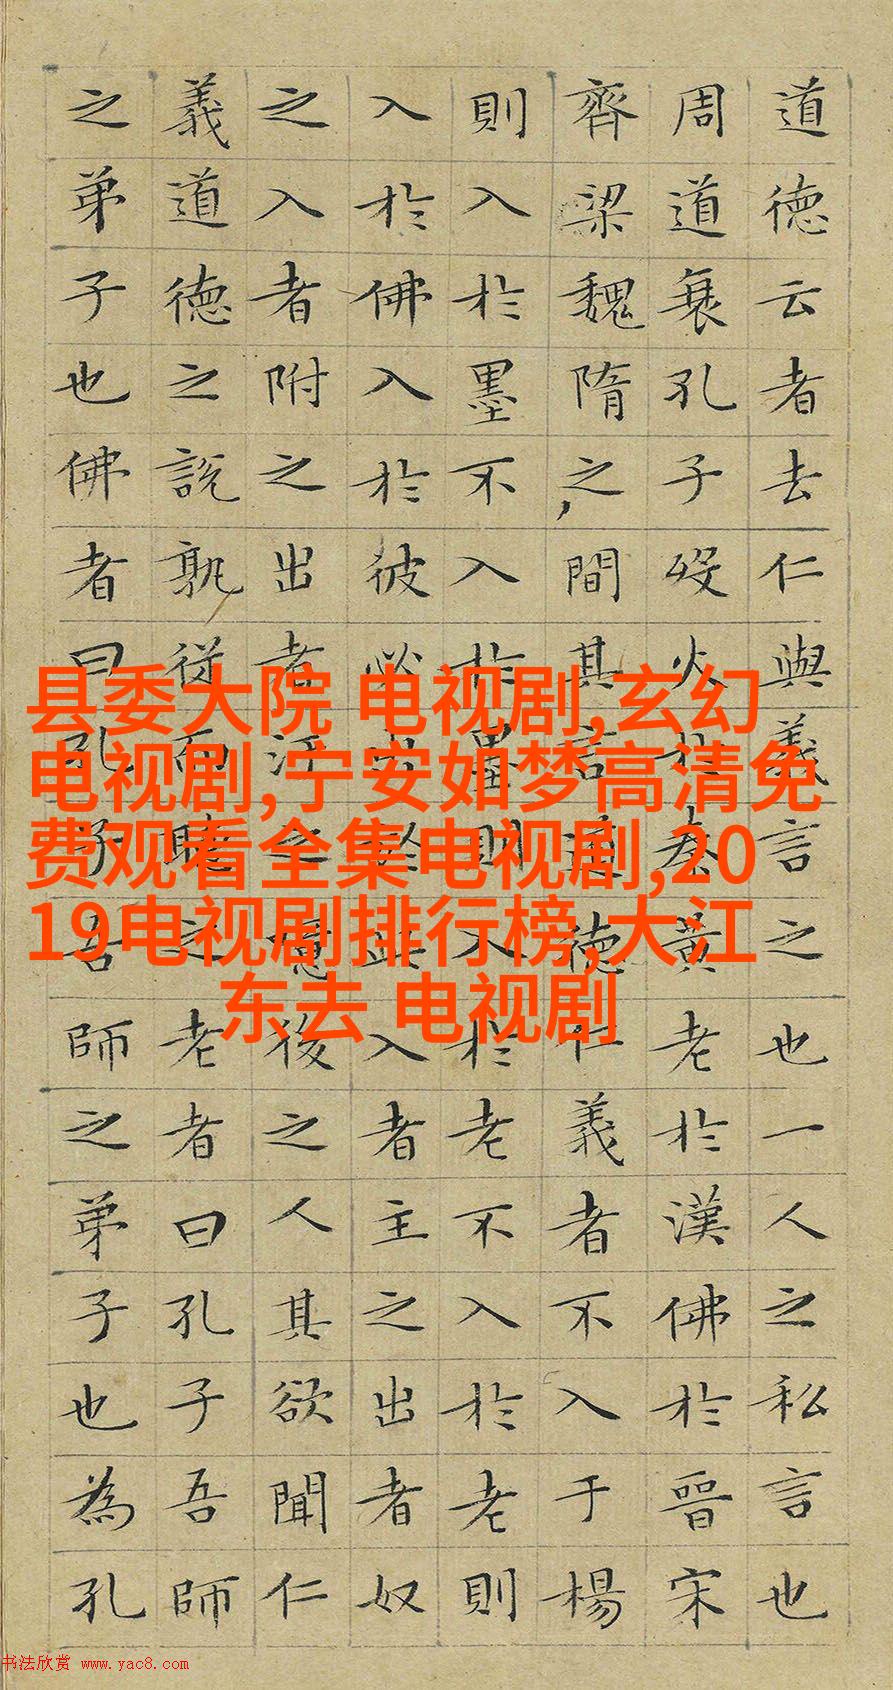 道德云者去仁與義言之也一人之私言也
周道衰孔子歿火於秦黃老於漢佛於晉宋
齊梁魏隋之間其言道德仁義者不入于楊
則入於墨不入於墨則入於老不入於老則
入於佛入於彼必出於此入者主之出者奴
之入者附之出者汙之噫後之人其欲聞仁
義道德之說孰從而聽之老者曰孔子吾師
之弟子也佛者曰孔子吾師之弟子也為孔
县委大院 电视剧,玄幻
电视剧,宁安如梦高清免
费观看全集电视剧,20
19电视剧排行榜,大江
东去 电视剧
书法欣赏 www.yac8.com